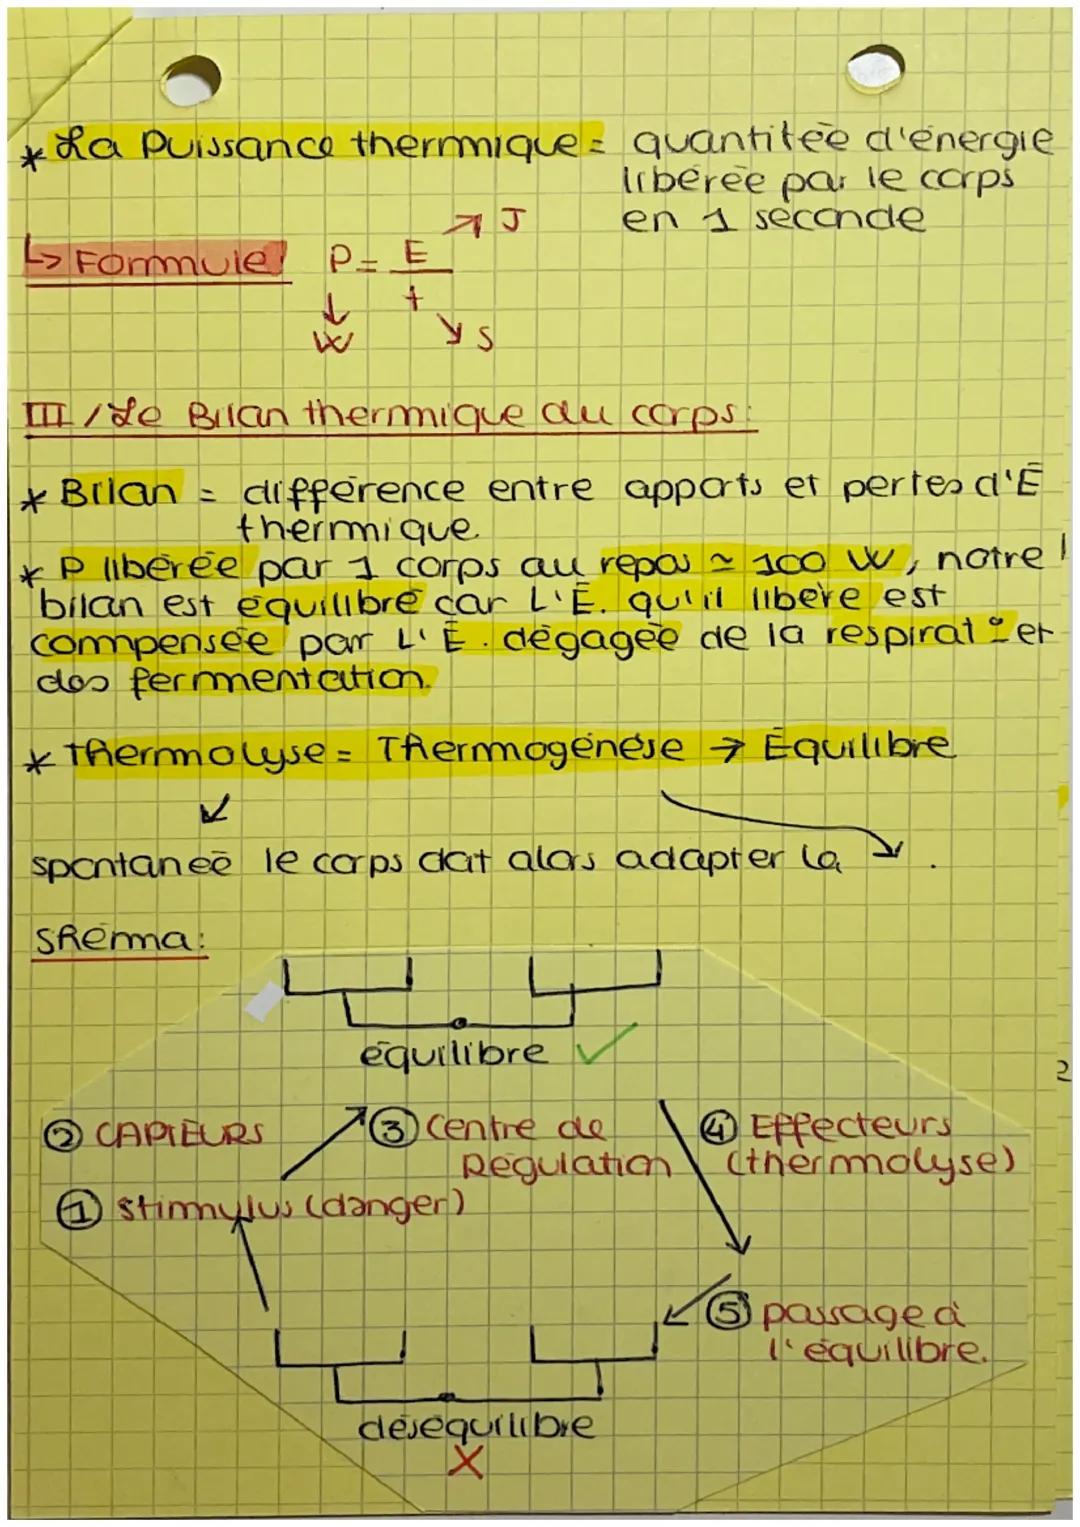 * La Puissance thermique = quantitée d'énergie
libérée par le corps
en 1 seconde
↳ Formule! P = E ↗ J
t
↓ W ↘ S
III / Le Bilan thermique du corps:
* Bilan = différence entre apports et pertes d'É
thermique.
* P libérée par 1 corps au repos ≃ 100 W, notre
bilan est équilibré car L'É. qu'il libère est
compensée par L'É. dégagée de la respirat° et
des fermentation.
* Thermolyse = Thermogénèse → Équilibre
↙
spontaneé le corps doit alors adapter la ↘.
Shéma:
équilibre ✓
② CAPTEURS ③ Centre de ④ Effecteurs
Régulation (thermolyse)
① stimulus (danger)
⑤ passage à
l'équilibre.
déséquilibre
X
2